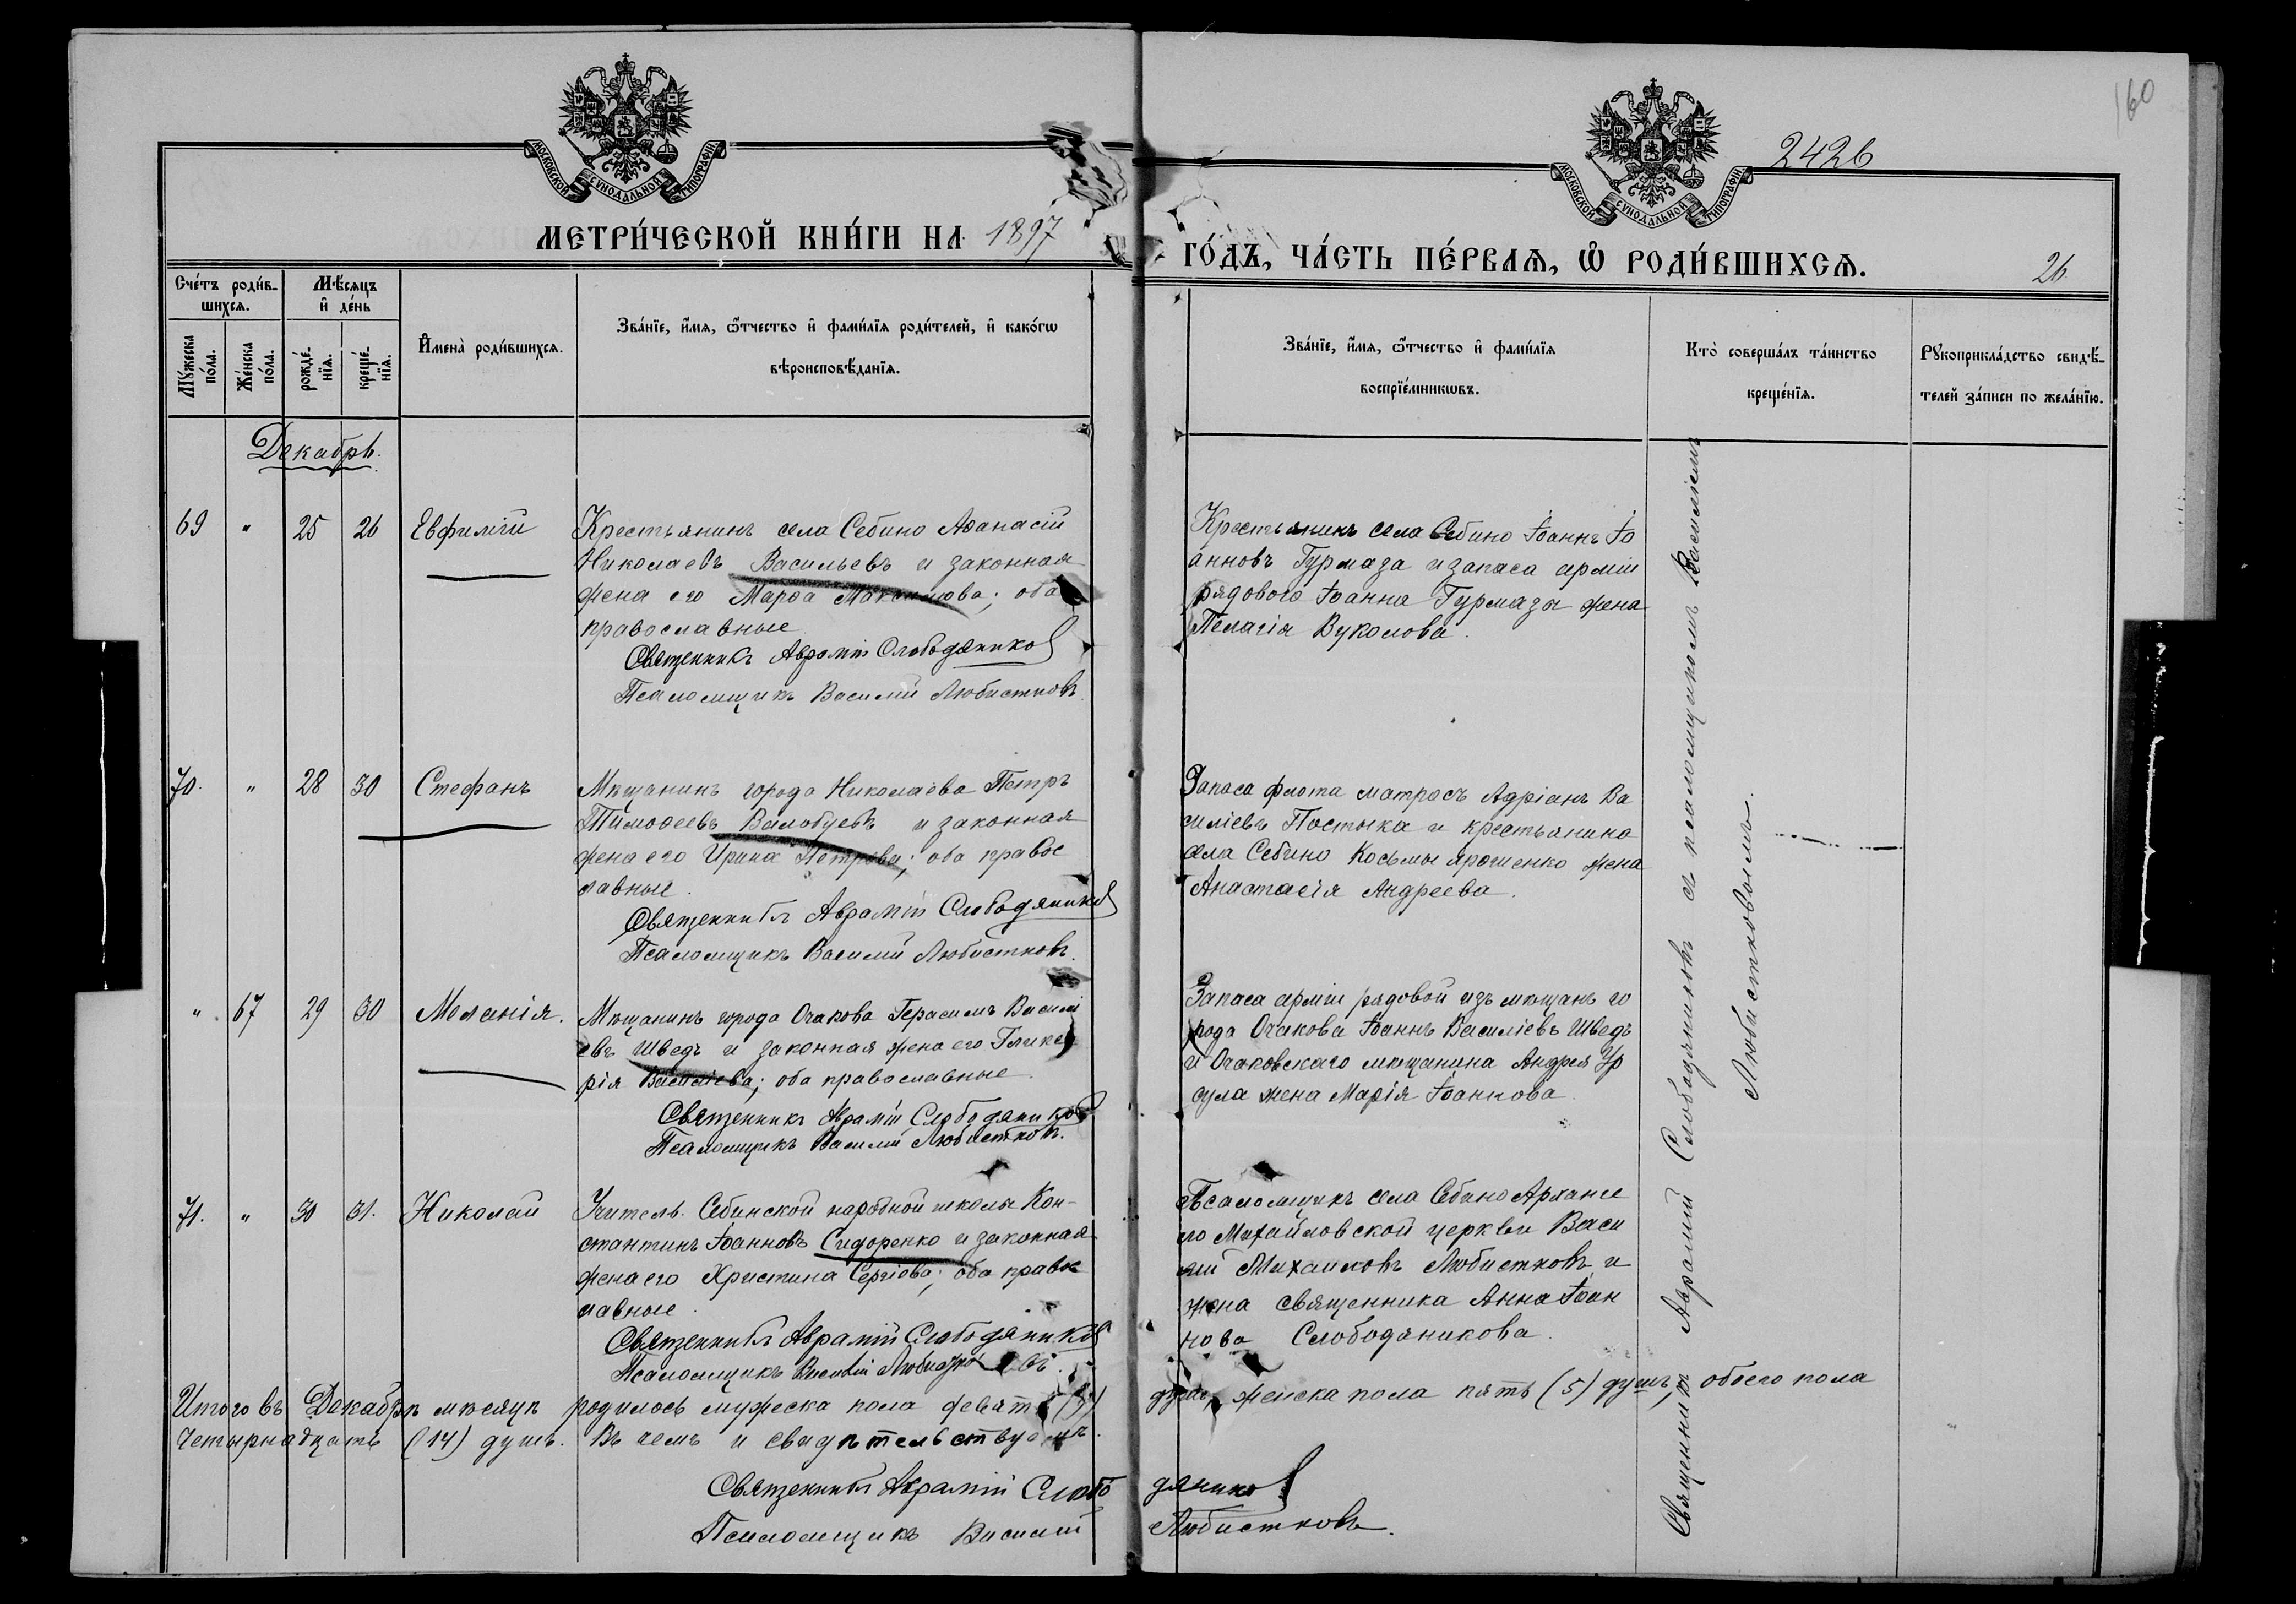 160
2426
МОСКОВСКОЙ СѴНОДАЛЬНОЙ ТИПОГРАФІИ
МОСКОВСКОЙ СѴНОДАЛЬНОЙ ТИПОГРАФІИ
МЕТРИ́ЧЕСКОЙ КНИ́ГИ НА 1897
ГО́ДЪ, ЧА́СТЬ ПЕ́РВАѦ, Ѡ҆ РОДИ́ВШИХСѦ.
26
Сче́тъ роди́в-
шихся.
Мѣ́сяцъ
и҆ де́нь
Мꙋ́жеска
по́ла.
Же́нска
по́ла.
рожде́-
нїя.
креще́-
нїя.
И҆мена̀ роди́вшихся.
Зва́нїе, и҆́мя, ѻ҆́тчество и҆ фами́лїя роди́телей, и҆ како́гѡ
вѣроисповѣ́данїя.
Зва́нїе, и҆́мя, ѻ҆́тчество и҆ фами́лїя
воспрїе́мникѡвъ.
Кто̀ соверша́лъ та́инство
креще́нїя.
Рꙋкоприкла́дство свидѣ́-
телей за́писи по жела́нїю.
Декабрь.
69 " 25 26 Евфимій
Крестьянинъ села Себино Аѳанасій
Николаевъ Васильевъ и законная
жена его Марѳа Максимова; оба
православные
Священникъ Аврамій Слободяников
Псаломщикъ Василій Любистковъ.
Крестьянинъ села Себино Іоаннъ Іо
анновъ Гурмаза и запаса арміи
рядового Іоанна Гурмазы жена
Пелагія Вуколова.
70. " 28 30 Стефанъ
Мѣщанинъ города Николаева Петръ
Тимоѳеевъ Валобуевъ и законная
жена его Ирина Петрова; оба правос
лавные.
Священникъ Аврамій Слободяников
Псаломщикъ Василій Любистковъ.
Запаса флота матросъ Адріанъ Ва
силіевъ Постыка и крестьянина
села Себино Косьмы Ярошенко жена
Анастасія Андреева.
" 67 29 30 Меланія.
Мѣщанинъ города Очакова Герасимъ Василі
евъ Шведъ и законная жена его Глике
рія Василіева; оба православные.
Священникъ Аврамій Слободяников
Псаломщикъ Василій Любистковъ.
Запаса арміи рядовой изъ мѣщанъ го
рода Очакова Іоаннъ Василіевъ Шведъ
и Очаковскаго мѣщанина Андрея Ур
сула жена Марія Іоаннова.
71. " 30 31. Николай
Учитель Себинской народной школы Кон-
стантинъ Іоанновъ Сидоренко и законная
жена его Христина Сергіева; оба правос
лавные.
Священникъ Аврамій Слободяников
Псаломщикъ Василій Любистковъ.
Псаломщикъ села Себино Арханге
ло Михайловской церкви Васи
лій Михаиловъ Любистковъ и
жена священника Анна Іоан
нова Слободяникова.
Священникъ Аврамій Слободяниковъ съ псаломщикомъ Василіемъ
Любистковымъ.
Итого въ Декабрѣ мѣсяцѣ родилось мужеска пола девять (9) душъ, женска пола пять (5) душъ, обоего пола
четырнадцать (14) душъ. Въ чемъ и свидѣтельствуемъ.
Священникъ Аврамій Слободяников
Псаломщикъ Василій Любистковъ.